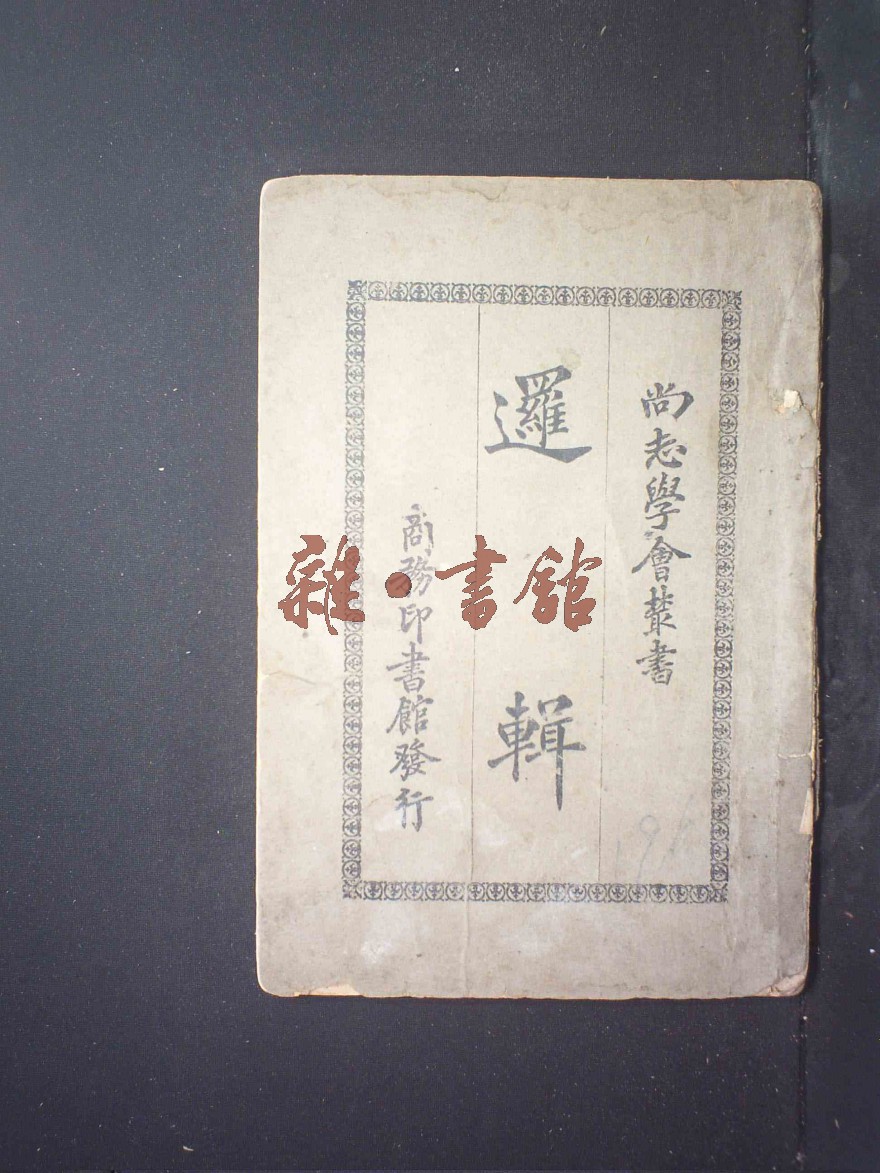 尚志學會叢書
邏輯
商務印書館發行
雜·書館